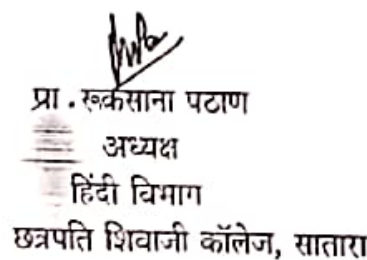 प्रा. रूकसाना पठाण
अध्यक्ष
हिंदी विभाग
छत्रपति शिवाजी कॉलेज, सातारा